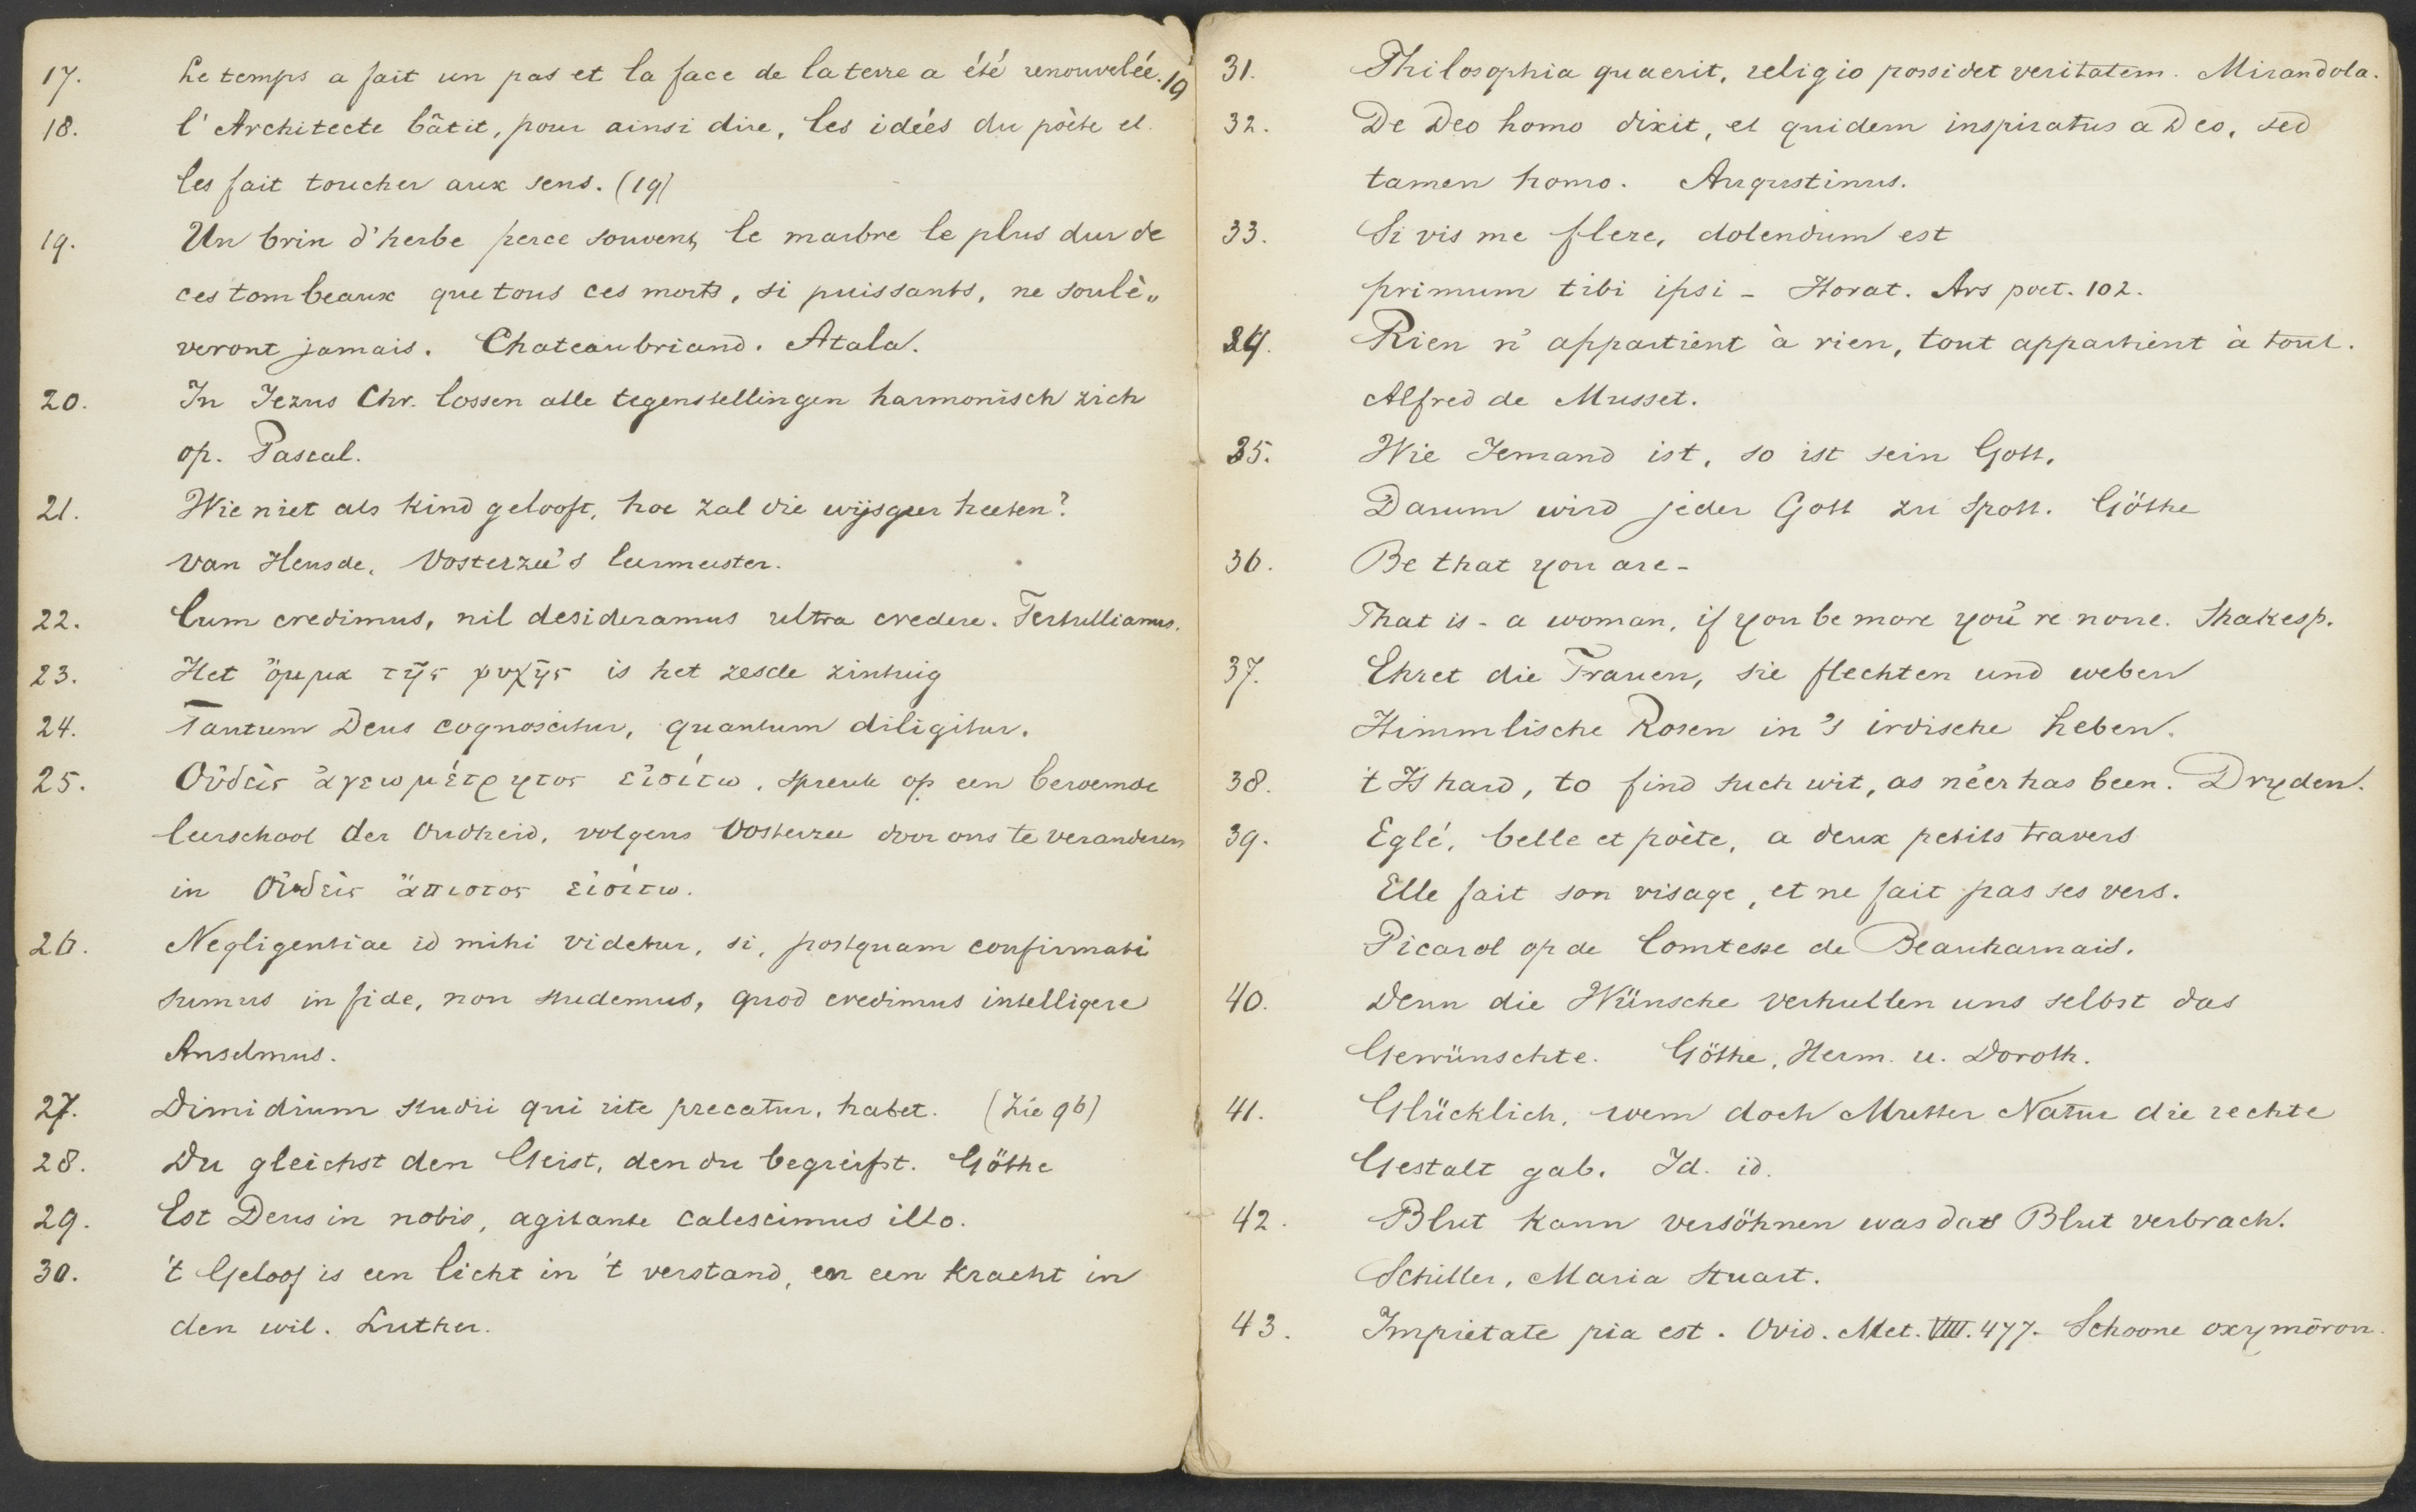 17. Le temps a fait un pas et la face de la terre a été renouvelée. 19
18. l'Architecte bâtit, pour ainsi dire, les idées du poète et
les fait toucher aux sens. (19)
19. Un brin d'herbe perce souvent le marbre le plus dur de
ces tombeaux que tous ces morts, si puissants, ne soulè„
veront jamais. Chateaubriand. Atala.
20. In Jezus Chr. lossen alle tegenstellingen harmonisch zich
op. Pascal.
21. Wie niet als kind gelooft, hoe zal die wijsgeer heeten?
van Heusde, Oosterzee's leermeester.
22. Cum credimus, nil desideramus ultra credere. Tertullianus.
23. Het ὄμμα τῆς ψυχῆς is het zesde zintuig
24. Tantum Deus cognoscitur, quantum diligitur.
25. Οὐδεὶς ἀγεωμέτρητος εἰσίτω, spreuk op een beroemde
leerschool der Oudheid, volgens Oosterzee door ons te veranderen
in Οὐδεὶς ἄπιστος εἰσίτω.
26. Negligentiae id mihi videtur, si, postquam confirmati
sumus in fide, non studemus, quod credimus intelligere
Anselmus.
27. Dimidium studii qui rite precatur, habet. (Zie 96)
28. Du gleichst den Geist, den du begreifst. Göthe
29. Est Deus in nobis, agitante calescimus illo.
30. 't Geloof is een licht in 't verstand, en een kracht in
den wil. Luther.
31. Philosophia quaerit, religio possidet veritatem. Mirandola.
32. De Deo homo dixit, et quidem inspiratus a Deo, sed
tamen homo. Augustinus.
33. Si vis me flere, dolendum est
primum tibi ipsi - Horat. Ars poet. 102.
34. Rien n'appartient à rien, tout appartient à tout.
Alfred de Musset.
35. Wie Jemand ist, so ist sein Gott,
Darum wird jeder Gott zu Spott. Göthe
36. Be that you are -
That is - a woman, if you be more you're none. Shakesp.
37. Ehret die Frauen, sie flechten und weben
Himmlische Rosen in's irdische Leben.
38. 't Is hard, to find such wit, as ne'er has been. Dryden.
39. Eglé, belle et poète, a deux petits travers
Elle fait son visage, et ne fait pas ses vers.
Picard op de Comtesse de Beauharnais.
40. Denn die Wünsche verhullen uns selbst das
Gewünschte. Göthe, Herm. u. Doroth.
41. Glücklich, wem doch Mutter Natur die rechte
Gestalt gab. Id. id.
42. Blut kann versöhnen was das Blut verbrach.
Schiller, Maria Stuart.
43. Impietate pia est. Ovid. Met. VIII. 477. Schoone oxymōron.